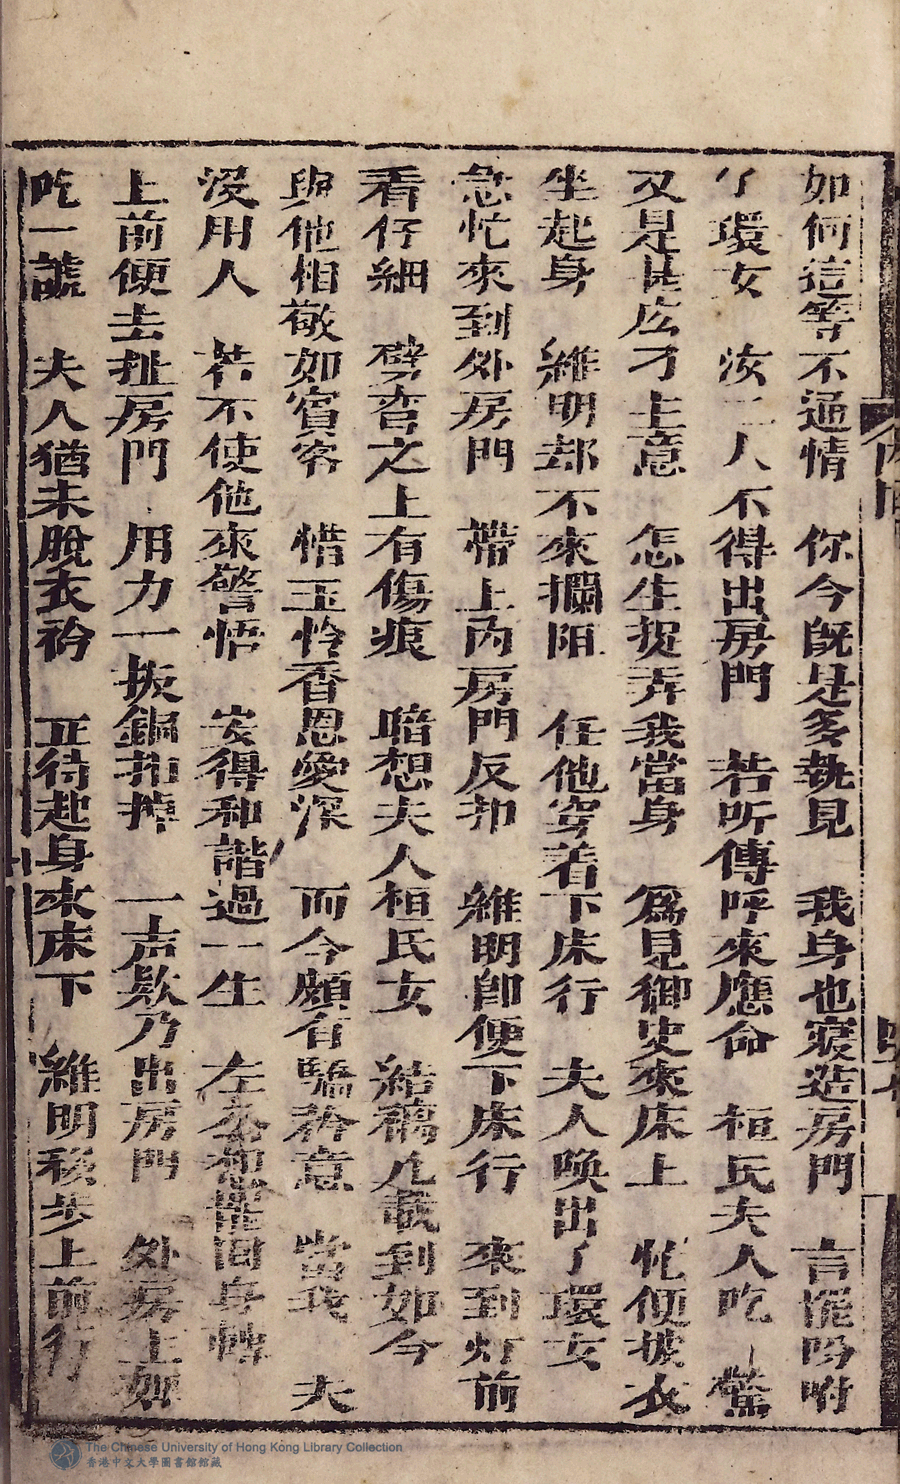 如何這等不通情 你今既是多執見 我身也寢這房門 言罷吩咐
了環女 汝二人不得出房門 若听傳呼來應命 桓氏夫人吃一驚
又是甚庅刁主意 怎生捉弄我當身 為見御史來床上 忙便披衣
坐起身 維明却不來攔阻 任他穿着下床行 夫人喚出了環女
急忙來到外房門 帶上內房門反扣 維明即便下床行 來到灯前
看仔細 劈宫之上有傷痕 暗想夫人桓氏女 結褵几載到如今
與他相敬如賓客 惜玉怜香恩愛深 而今頗有驕矜意 當我 夫
沒用人 若不使他來警悟 安得和諧過一生 左 想罷回身轉
上前便去扯房門 用力一扳銅扣掉 一声欵乃出房門 外房上 如
吃一諕 夫人猶未脫衣衿 正待起身來床下 維明移步上前行